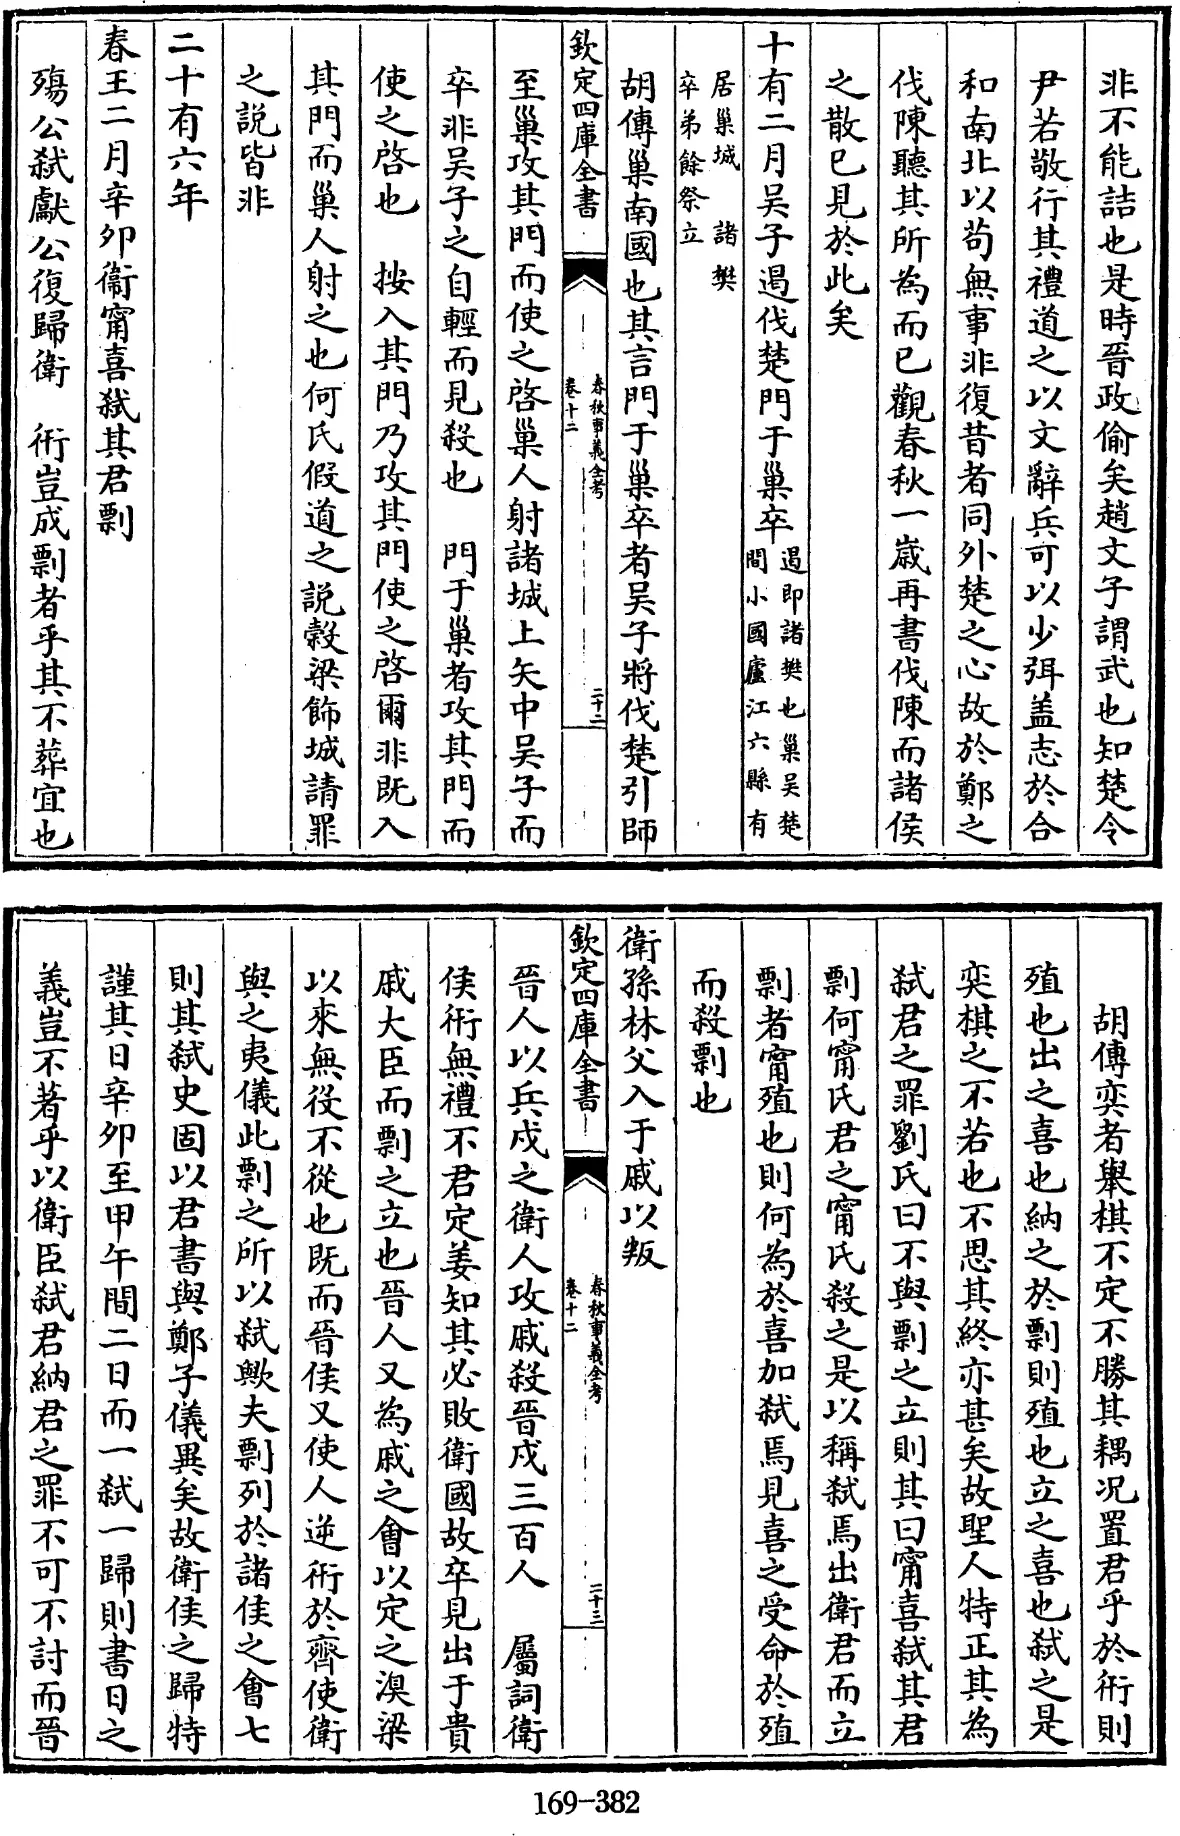 非不能詰也是時晉政偷矣趙文子謂武也知楚令
尹若敬行其禮道之以文辭兵可以少弭盖志於合
和南北以茍無事非復昔者同外楚之心故於鄭之
伐陳聽其所為而已觀春秋一嵗再書伐陳而諸侯
之散已見於此矣
十有二月吴子遏伐楚門于巢卒遏即諸樊也巢吴楚
間小國廬江六縣有
居巢城　諸樊
卒弟餘祭立
胡傳巢南國也其言門于巢卒者吴子將伐楚引師
欽定四庫全書
春秋事義全考
卷十二
二十二
至巢攻其門而使之啓巢人射諸城上矢中吴子而
卒非吴子之自輕而見殺也　門于巢者攻其門而
使之啓也　按入其門乃攻其門使之啓爾非既入
其門而巢人射之也何氏假道之説榖梁飾城請罪
之説皆非
二十有六年
春王二月辛卯衞甯喜弑其君剽
殤公弑獻公復歸衛　衎豈成剽者乎其不葬宜也
胡傳奕者舉棋不定不勝其耦况置君乎於衎則
殖也出之喜也納之於剽則殖也立之喜也弑之是
奕棋之不若也不思其終亦甚矣故聖人特正其為
弑君之罪劉氏曰不與剽之立則其曰甯喜弑其君
剽何甯氏君之甯氏殺之是以稱弑焉出衛君而立
剽者甯殖也則何為於喜加弑焉見喜之受命於殖
而殺剽也
衛孫林父入于戚以叛
欽定四庫全書
春秋事義全考
卷十二
二十三
晉人以兵戍之衛人攻戚殺晉戍三百人　屬詞衛
侯衎無禮不君定姜知其必敗衛國故卒見出于貴
戚大臣而剽之立也晉人又為戚之會以定之湨梁
以來無役不從也既而晉侯又使人逆衎於齊使衛
與之夷儀此剽之所以弑歟夫剽列於諸侯之會七
則其弑史固以君書與鄭子儀異矣故衛侯之歸特
謹其日辛卯至甲午間二日而一弑一歸則書日之
義豈不著乎以衛臣弑君納君之罪不可不討而晉
169-382